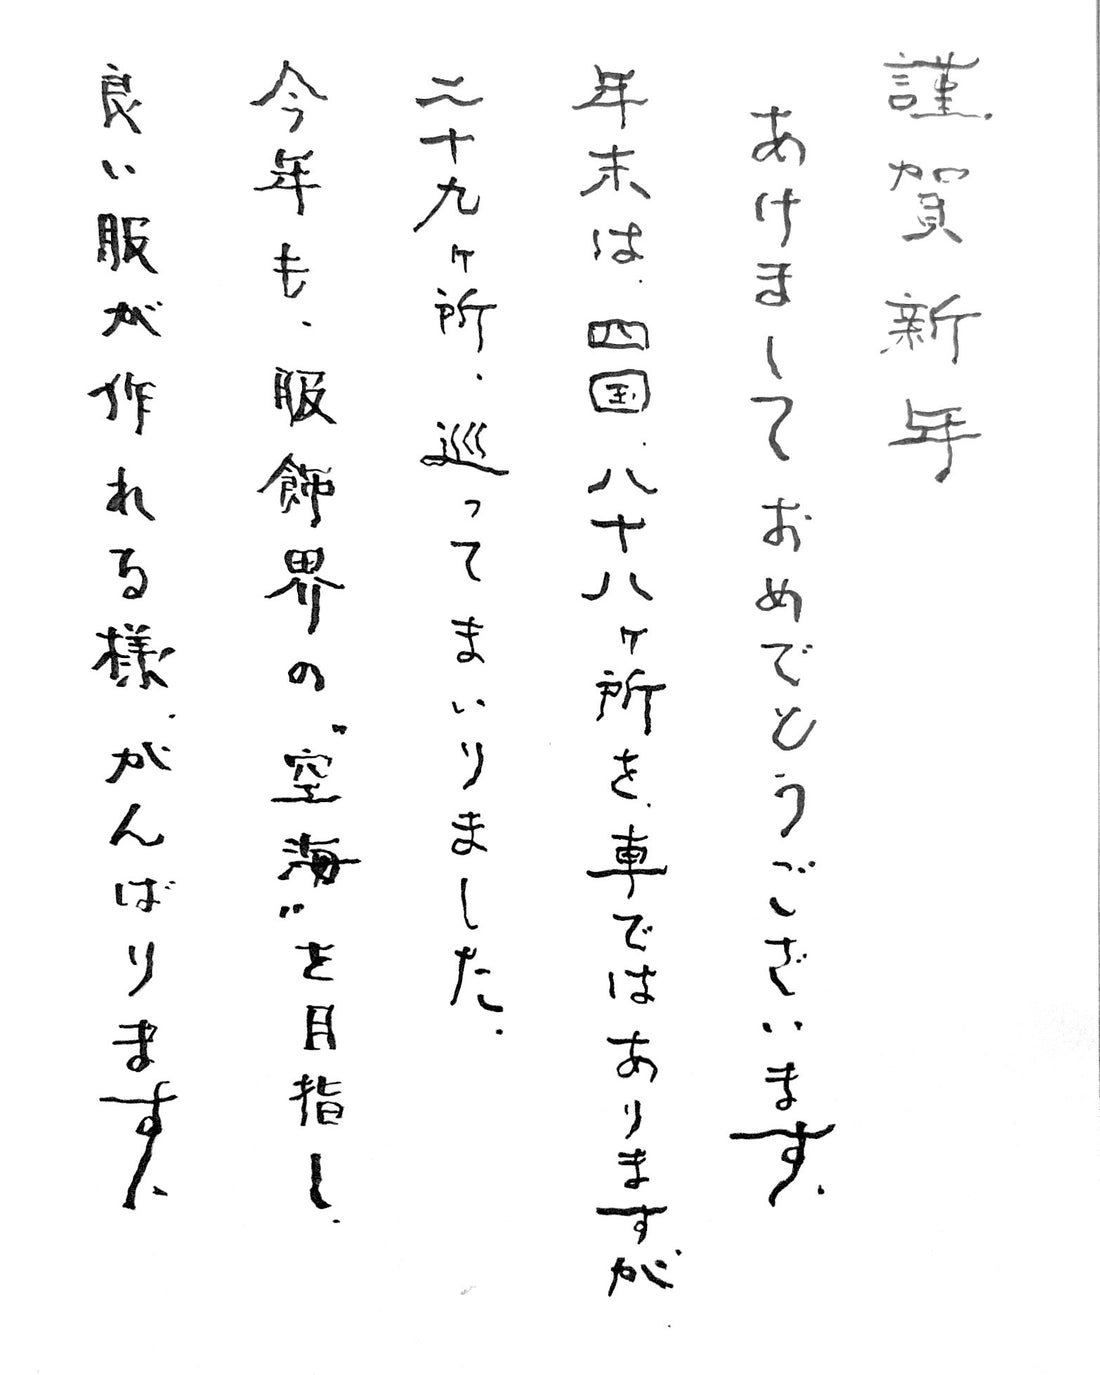 謹賀新年
あけましておめでとうございます.
年末は.四国.八十八ヶ所を.車ではありますが
二十九ヶ所.巡ってまいりました.
今年も.服飾界の〝空海〟を目指し.
良い服が作れる様.がんばります.